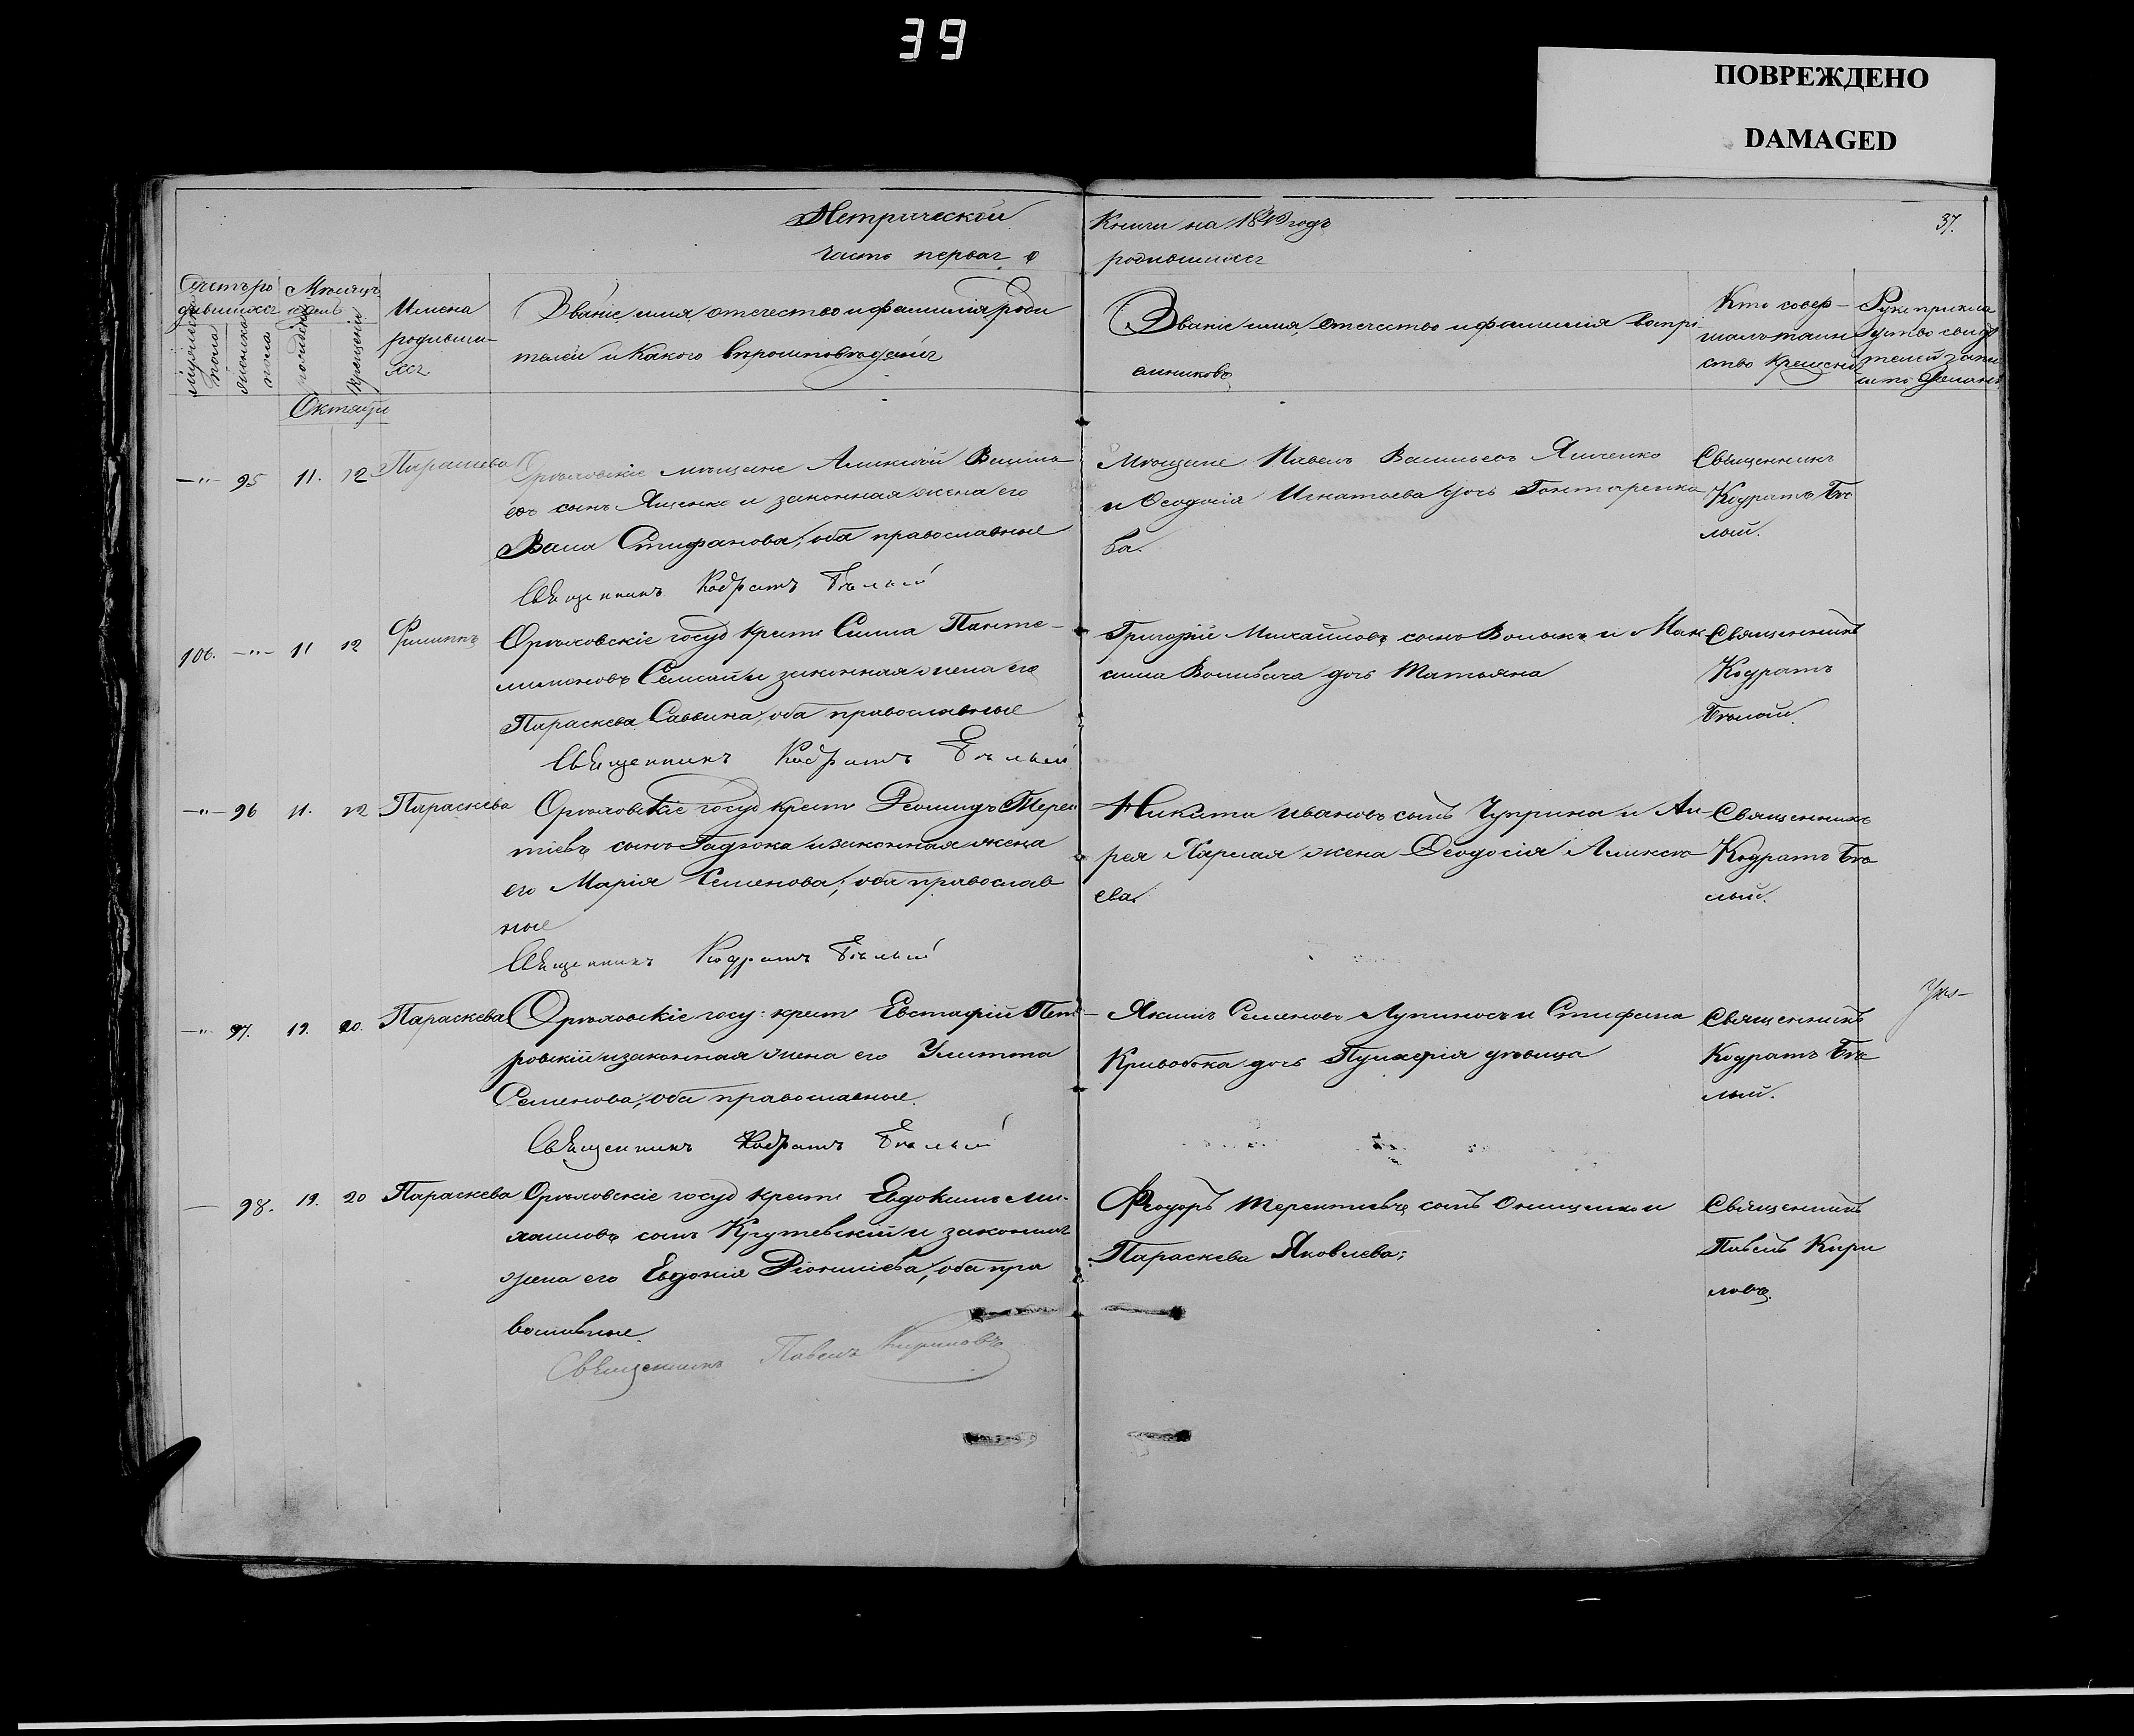 39
ПОВРЕЖДЕНО
DAMAGED
Метрической Книги на 1849 годъ
37.
часть первая о родившихся
Счетъ родившихся
мужеска пола
женска пола
Месяцъ и день
рождения
крещения
Имена родившихся
Званіе имя отечество и фамилія роди
телей и какого вероисповеданія
Званіе имя отечество и фамилія воспрі
емниковъ
Кто совер-
шалъ таин
ство крещенія
Рукоприкла
дство свиде
телей записи
Октября
—"— 95 11. 12 Параскева
Ореховскіе мещане Алексей Василь
евъ сынъ Ященко и законная жена его
Васса Стефанова, оба православные
Священникъ Кодратъ Белый
Мещане Павелъ Васильевъ Ященко
и Феодосія Игнатьева дочь Гонтаренко
ва.
Священникъ
Кодратъ Бе
лый.
106. —"— 11 12 Филиппъ
Ореховскіе госуд крест Сила Панте-
лимоновъ и законная жена его
Параскева Саввина, оба православные
Священникъ Кодратъ Белый
Григорій Михайловъ сынъ Волыкъ и Мак
сима дочь Татьяна
Священникъ
Кодратъ
Белый.
—"— 96 11. 12 Параскева
Ореховскіе госуд крест Терен
тіевъ сынъ Гадюка и законная жена
его Марія Семенова, оба православ
ные
Священникъ Кодратъ Белый
Никита Ивановъ сынъ Чуприна и Ан-
рея жена Феодосія Алексе
ева.
Священникъ
Кодратъ Бе
лый.
—"— 97. 19. 20. Параскева
Ореховскіе госу: крест Евстафій Пет
ровскій и законная жена его Улитта
Семенова, оба православные.
Священникъ Кодратъ Белый
Якимъ Семеновъ и Стефана
дочь Пулхерія девица
Священникъ
Кодратъ Бе
лый.
— 98. 19. 20 Параскева
Ореховскіе госуд крест Евдокимъ Ми-
хаиловъ сынъ Крутевскій и законная
жена его Евдокія Діонисіева, оба пра
вославные.
Священникъ Павелъ Кириловъ
Феодоръ Терентіевъ сынъ Онищенко и
Параскева Яковлева;
Священникъ
Павелъ Кири
ловъ.